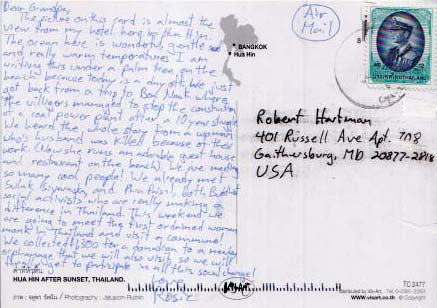 Dear Grandpa,
The picture on this card is almost the
view from my hotel here in Hua Hin.
The ocean here is wonderful, gentle surf
and really warm temperatures. I am
writing this under a palm tree on the
beach because today is a day off. We just
got back from a trip to Bo Nok where
the villagers managed to stop the construction
of a coal power plant after a 10 year struggle.
We heard the whole story from a woman
who's husband was killed because of their
work. Now she runs an adorable guest house
and restaurant on the beach. We are meeting
so many cool people! We already met
Sulak Sivaraksa and Pra Paisal, both Buddhist
social activists who are really making a
difference in Thailand. This weekend we
are going to meet the first ordained woman
monk in Thailand and visit a commune!
We collected $300 for a donation to a
orphanage that we will also visit, so we will
actually get to participate in all this social change!
Love,
Rosie
Air
Mail
BANGKOK
Hua Hin
ประเทศไทย THAILAND
Robert Hartman
401 Russell Ave Apt. 708
Gaithersburg, MD 20877-2818
USA
HUA HIN AFTER SUNSET, THAILAND.
Photography : Jatuporn Rutnin
TC 2477
distributed by Vis-Art.
www.visart.co.th